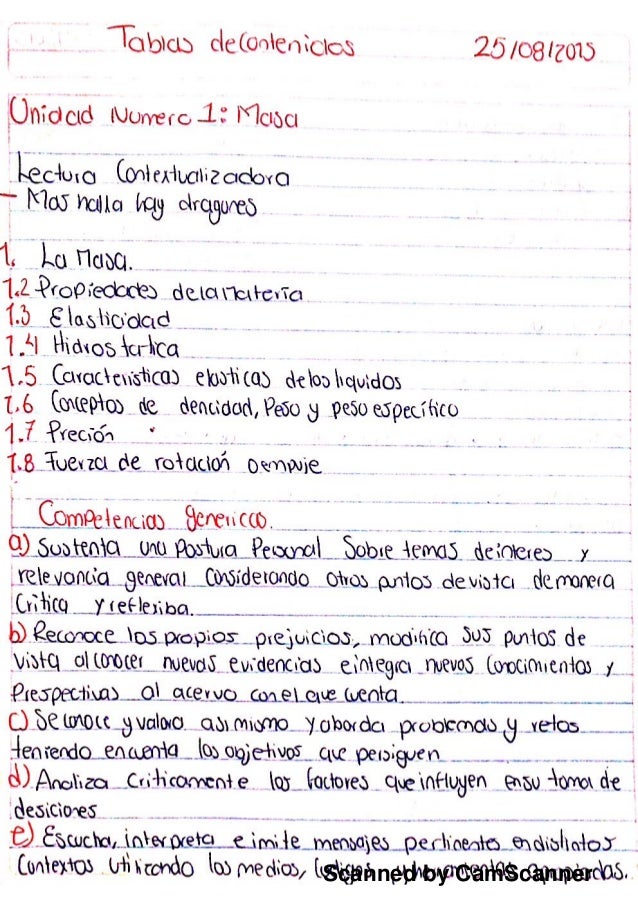 Tablas de Contenidos 25/08/2015
Unidad Numero 1: Masa
Lectura Contextualizadora
- Mas halla hay dragones
1. La Masa.
1.2 Propiedades de la Materia
1.3 Elasticidad
1.4 Hidrostatica
1.5 Caracteristicas elasticas de los liquidos
1.6 Conceptos de dencidad, Peso y peso específico
1.7 Preción
1.8 Fuerza de rotación o empuje
Competencias genericas.
a) Sustenta una Postura Personal Sobre temas de interes y
relevancia general Considerando otros puntos de vista de manera
Critica y reflexiba.
b) Reconoce los propios prejuicios, modifica sus puntos de
vista al conocer nuevas evidencias e integra nuevos Conocimientos y
Prespectivas al acervo con el que cuenta.
c) Se conoce y valora asi mismo y aborda problemas y retos
teniendo encuenta los objetivos que persiguen
d) Analiza Criticamente los factores que influyen en su toma de
desiciones
e) Escucha, interpreta e imite mensajes pertinentes en distintos
Contextos utilizando los medios, apropiadas.
Scanned by CamScanner